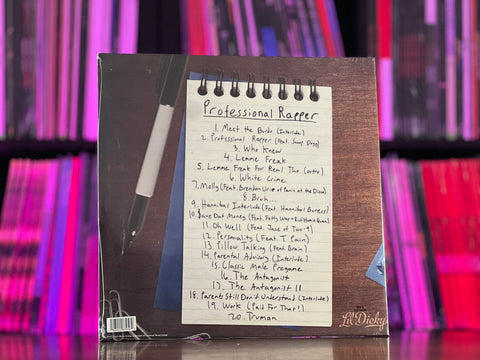 Professional Rapper
1. Meet the Burds (Interlude)
2. Professional Rapper (feat. Snoop Dogg)
3. Who Knew
4. Lemme Freak
5. Lemme Freak For Real Tho (outro)
6. White Crime
7. Molly (Feat. Brendon Urie of Panic at the Disco)
8. Bruh...
9. Hannibal Interlude (Feat. Hannibal Buress)
10. $ave Dat Money (Feat. Fetty Wap + Rich Homie Quan)
11. Oh Well (Feat. Jace of Two-9)
12. Personality (Feat. T Pain)
13. Pillow Talking (feat. Brain)
14. Parental Advisory (Interlude)
15. Classic Male Pregame
16. The Antagonist
17. The Antagonist II
18. Parents Still Don't Understand (Interlude)
19. Work (Paid For That?)
20. Truman
Lil Dicky